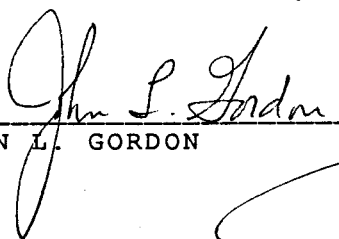 John L. Gordon
N L. GORDON